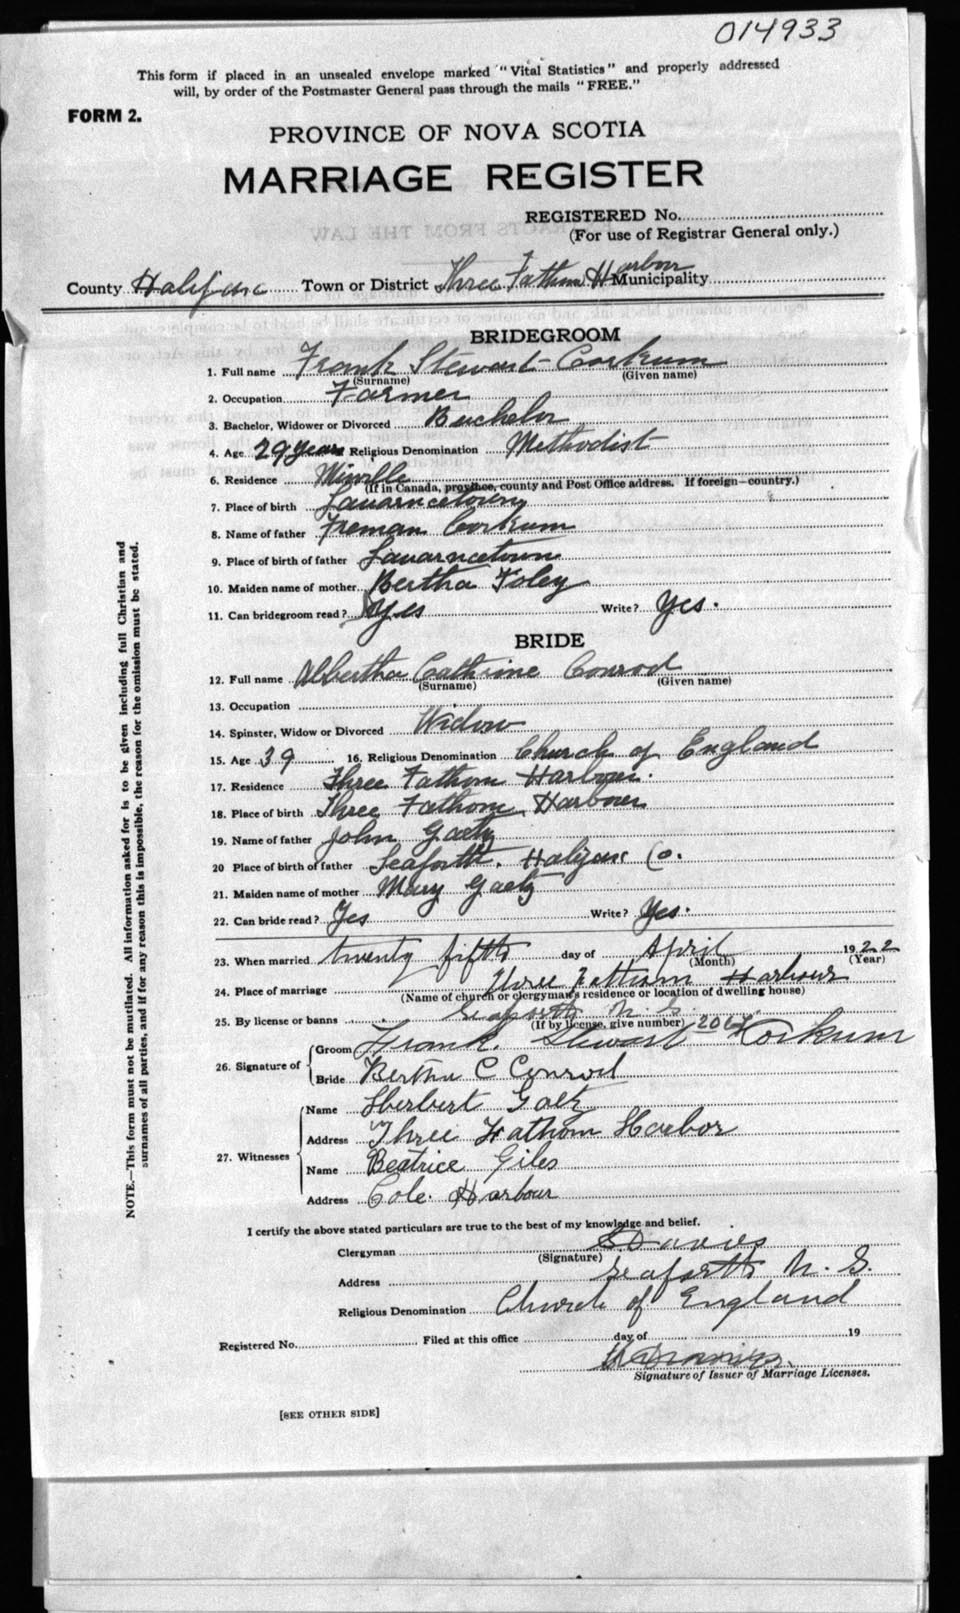 014933
This form if placed in an unsealed envelope marked "Vital Statistics" and properly addressed
will, by order of the Postmaster General pass through the mails "FREE."
FORM 2.
PROVINCE OF NOVA SCOTIA
MARRIAGE REGISTER
REGISTERED No.
(For use of Registrar General only.)
County Halifax Town or District Three Fathom Harbour Municipality
BRIDEGROOM
1. Full name Frank Stewart Corkum
(Surname) (Given name)
2. Occupation Farmer
3. Bachelor, Widower or Divorced Bachelor
4. Age 29 years Religious Denomination Methodist
6. Residence Minville
(If in Canada, province, county and Post Office address. If foreign—country.)
7. Place of birth Lauarncetown
8. Name of father Freman Corkum
9. Place of birth of father Lauarncetown
10. Maiden name of mother Bertha Foley
11. Can bridegroom read? Yes Write? Yes.
BRIDE
12. Full name Albertha Cathrine Conrod
(Surname) (Given name)
13. Occupation
14. Spinster, Widow or Divorced Widow
15. Age 39 16. Religious Denomination Church of England
17. Residence Three Fathom Harbour.
18. Place of birth Three Fathom Harbour
19. Name of father John Gaetz
20 Place of birth of father Seaforth. Halifax Co.
21. Maiden name of mother Mary Gaetz
22. Can bride read? Yes Write? Yes.
23. When married twenty fifth day of April 1922
(Month) (Year)
24. Place of marriage Three Fathom Harbour
(Name of church or clergyman's residence or location of dwelling house)
25. By license or banns Seaforth N. S.
(If by license, give number)
26. Signature of Groom Frank. Stewart Korkum
Bride Bertha C Conrod
27. Witnesses Name Herbert Gaetz
Address Three Fathom Harbor
Name Beatrice Giles
Address Cole Harbour
I certify the above stated particulars are true to the best of my knowledge and belief.
Clergyman Davies
(Signature)
Address Seaforth N. S.
Religious Denomination Church of England
Registered No. Filed at this office day of 19
Signature of Issuer of Marriage Licenses.
[SEE OTHER SIDE]
NOTE.—This form must not be mutilated. All information asked for is to be given including full Christian and
surnames of all parties, and if for any reason this is impossible, the reason for the omission must be stated.